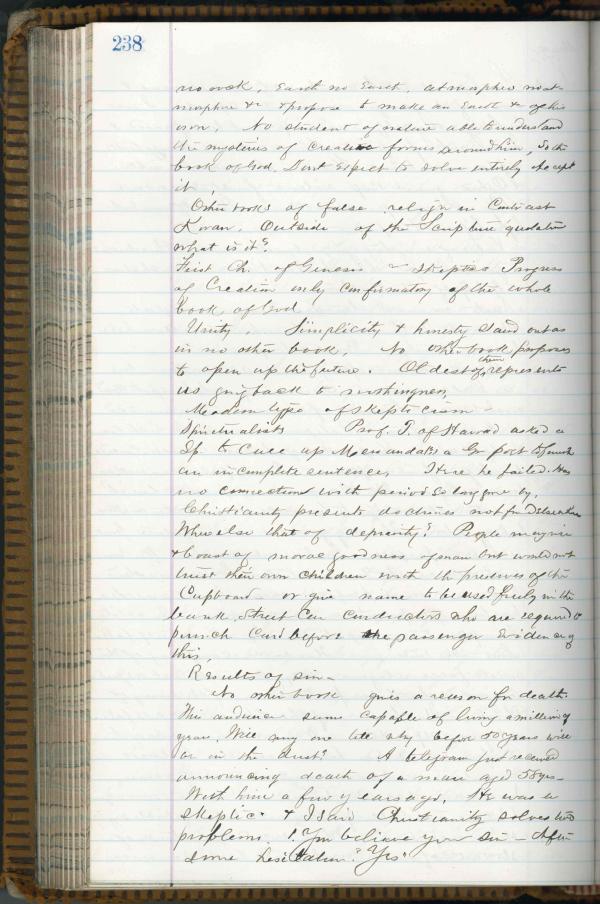 238
no rock, Earth no Earth, atmosphere no at-
mosphere &c & propose to make an Earth &
own. No student of nature able to understand
the mysteries of Creative forms around him. So the
book of God. Dont expect to solve entirely accept
it.
Other books of false religion in Contrast
Koran. Outside of the Scripture quotation
what is it?
First Ch. of Genesis Skeptics Progress
of Creation only confirmatory of the whole
book of God.
Unity. Simplicity & honesty stand out as
in no other book. No other book proposes
to open up the future. Oldest of them represents
us going back to nothingness,
Modern type of skepticism –
Spiritualists Prof. T. of Harvard asked a
Sp to Call up Menandas a Gr poet to finish
an incomplete sentence, Here he failed. Has
no connection with period so long gone by.
Christianity presents doctrines not found elsewhere
Where else that of depravity? People imagine
& boast of moral goodness of man but would not
trust their own children with the preserves of the
Cupboard or give name to be used freely in the
bank. Street Car Conductors who are required to
punch Card before the passenger Evidence of
this.
Results of sin –
No other book gives a reason for death.
This audience seems capable of living a million of
years. Will any one tell why before 50 years will
lie in the dust? A telegram just received
announcing death of a man aged 58 yrs –
With him a few years ago, He was a
skeptic & I said Christianity solves two
problems. You believe your sin – After
some hesitation "Yes"